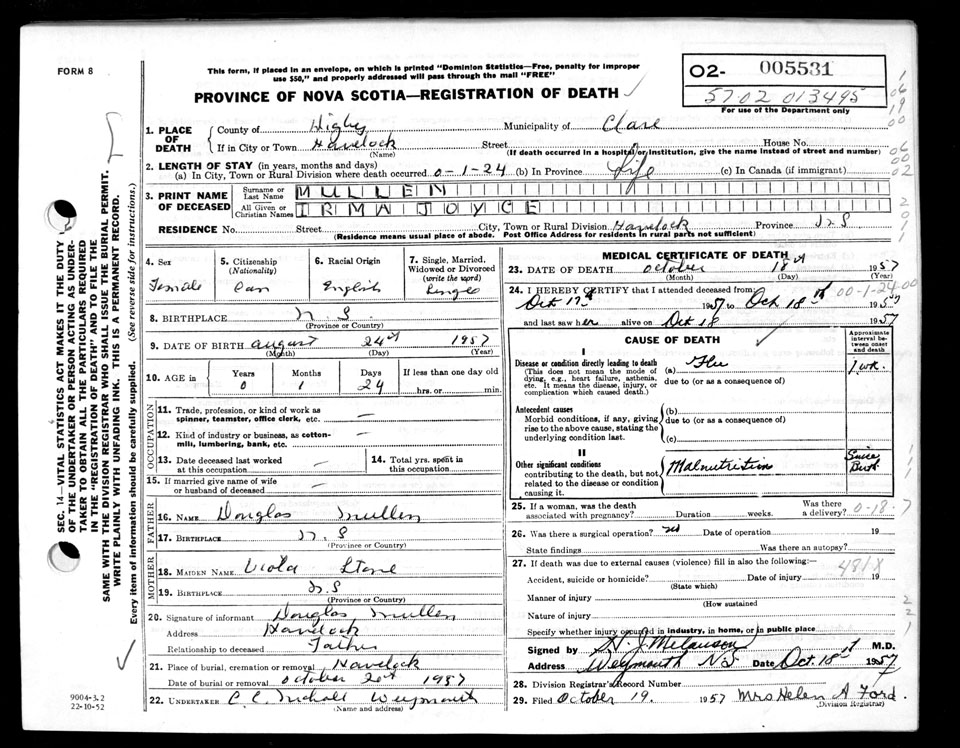 FORM 8
This form, if placed in an envelope, on which is printed "Dominion Statistics—Free, penalty for improper
use $50," and properly addressed will pass through the mail "FREE"
PROVINCE OF NOVA SCOTIA—REGISTRATION OF DEATH
O2- 005531
57.02 013495
For use of the Department only
1. PLACE OF DEATH
County of Digby Municipality of Clare
If in City or Town Havelock Street House No.
(Name) (If death occurred in a hospital or institution, give the name instead of street and number)
2. LENGTH OF STAY (in years, months and days)
(a) In City, Town or Rural Division where death occurred 0-1-24 (b) In Province Life (c) In Canada (if immigrant)
3. PRINT NAME OF DECEASED
Surname or Last Name MULLEN
All Given or Christian Names IRMA JOYCE
RESIDENCE No. Street City, Town or Rural Division Havelock Province N S
(Residence means usual place of abode. Post Office Address for residents in rural parts not sufficient)
4. Sex Female
5. Citizenship (Nationality) Can
6. Racial Origin English
7. Single, Married, Widowed or Divorced (write the word) Single
8. BIRTHPLACE N. S.
(Province or Country)
9. DATE OF BIRTH August 24th 1957
(Month) (Day) (Year)
10. AGE in Years 0 Months 1 Days 24 If less than one day old hrs. or min.
OCCUPATION
11. Trade, profession, or kind of work as
spinner, teamster, office clerk, etc. —
12. Kind of industry or business, as cotton-
mill, lumbering, bank, etc. —
13. Date deceased last worked
at this occupation —
14. Total yrs. spent in
this occupation
15. If married give name of wife
or husband of deceased —
FATHER
16. NAME Douglas Mullen
17. BIRTHPLACE N. S
(Province or Country)
MOTHER
18. MAIDEN NAME Viola Stone
19. BIRTHPLACE N. S
(Province or Country)
20. Signature of informant Douglas Mullen
Address Havelock
Relationship to deceased Father
21. Place of burial, cremation or removal Havelock
Date of burial or removal October 20th 1957
22. UNDERTAKER C. C. Weymouth
(Name and address)
MEDICAL CERTIFICATE OF DEATH
23. DATE OF DEATH October 18th 1957
(Month) (Day) (Year)
24. I HEREBY CERTIFY that I attended deceased from:
Oct 17th 1957 to Oct 18th 1957
00-1-24-00
and last saw her alive on Oct 18 1957
CAUSE OF DEATH
Approximate interval between onset and death
I
Disease or condition directly leading to death
(This does not mean the mode of
dying, e.g., heart failure, asthenia,
etc. It means the disease, injury, or
complication which caused death.)
(a) Flu 1 wk.
due to (or as a consequence of)
Antecedent causes
Morbid conditions, if any, giving
rise to the above cause, stating the
underlying condition last.
(b)
due to (or as a consequence of)
(c)
II
Other significant conditions
contributing to the death, but not
related to the disease or condition
causing it.
Malnutrition Since Birth
25. If a woman, was the death
associated with pregnancy? Duration weeks. Was there a delivery?
0-18-7
26. Was there a surgical operation? no Date of operation 19
State findings Was there an autopsy?
27. If death was due to external causes (violence) fill in also the following:—
481X
Accident, suicide or homicide? Date of injury 19
(State which)
Manner of injury
(How sustained
Nature of injury
Specify whether injury occurred in industry, in home, or in public place
Signed by Melanson M.D.
Address Weymouth NS Date Oct. 18th 1957
28. Division Registrar's Record Number
29. Filed October 19. 1957 Mrs Helen A Ford.
(Division Registrar)
SEC. 14—VITAL STATISTICS ACT MAKES IT THE DUTY
OF THE UNDERTAKER OR PERSON ACTING AS UNDER-
TAKER TO OBTAIN ALL THE PARTICULARS REQUIRED
IN THE "REGISTRATION OF DEATH" AND TO FILE THE
SAME WITH THE DIVISION REGISTRAR WHO SHALL ISSUE THE BURIAL PERMIT.
WRITE PLAINLY WITH UNFADING INK. THIS IS A PERMANENT RECORD.
Every item of information should be carefully supplied. (See reverse side for instructions.)
9004-3.2
22-10-52